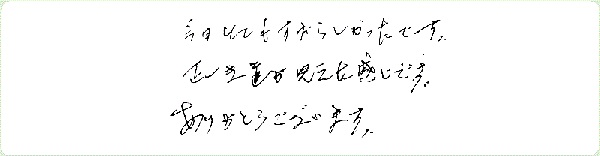 今日とてもすばらしかったです。
が見えた感じです。
ありがとうございます。